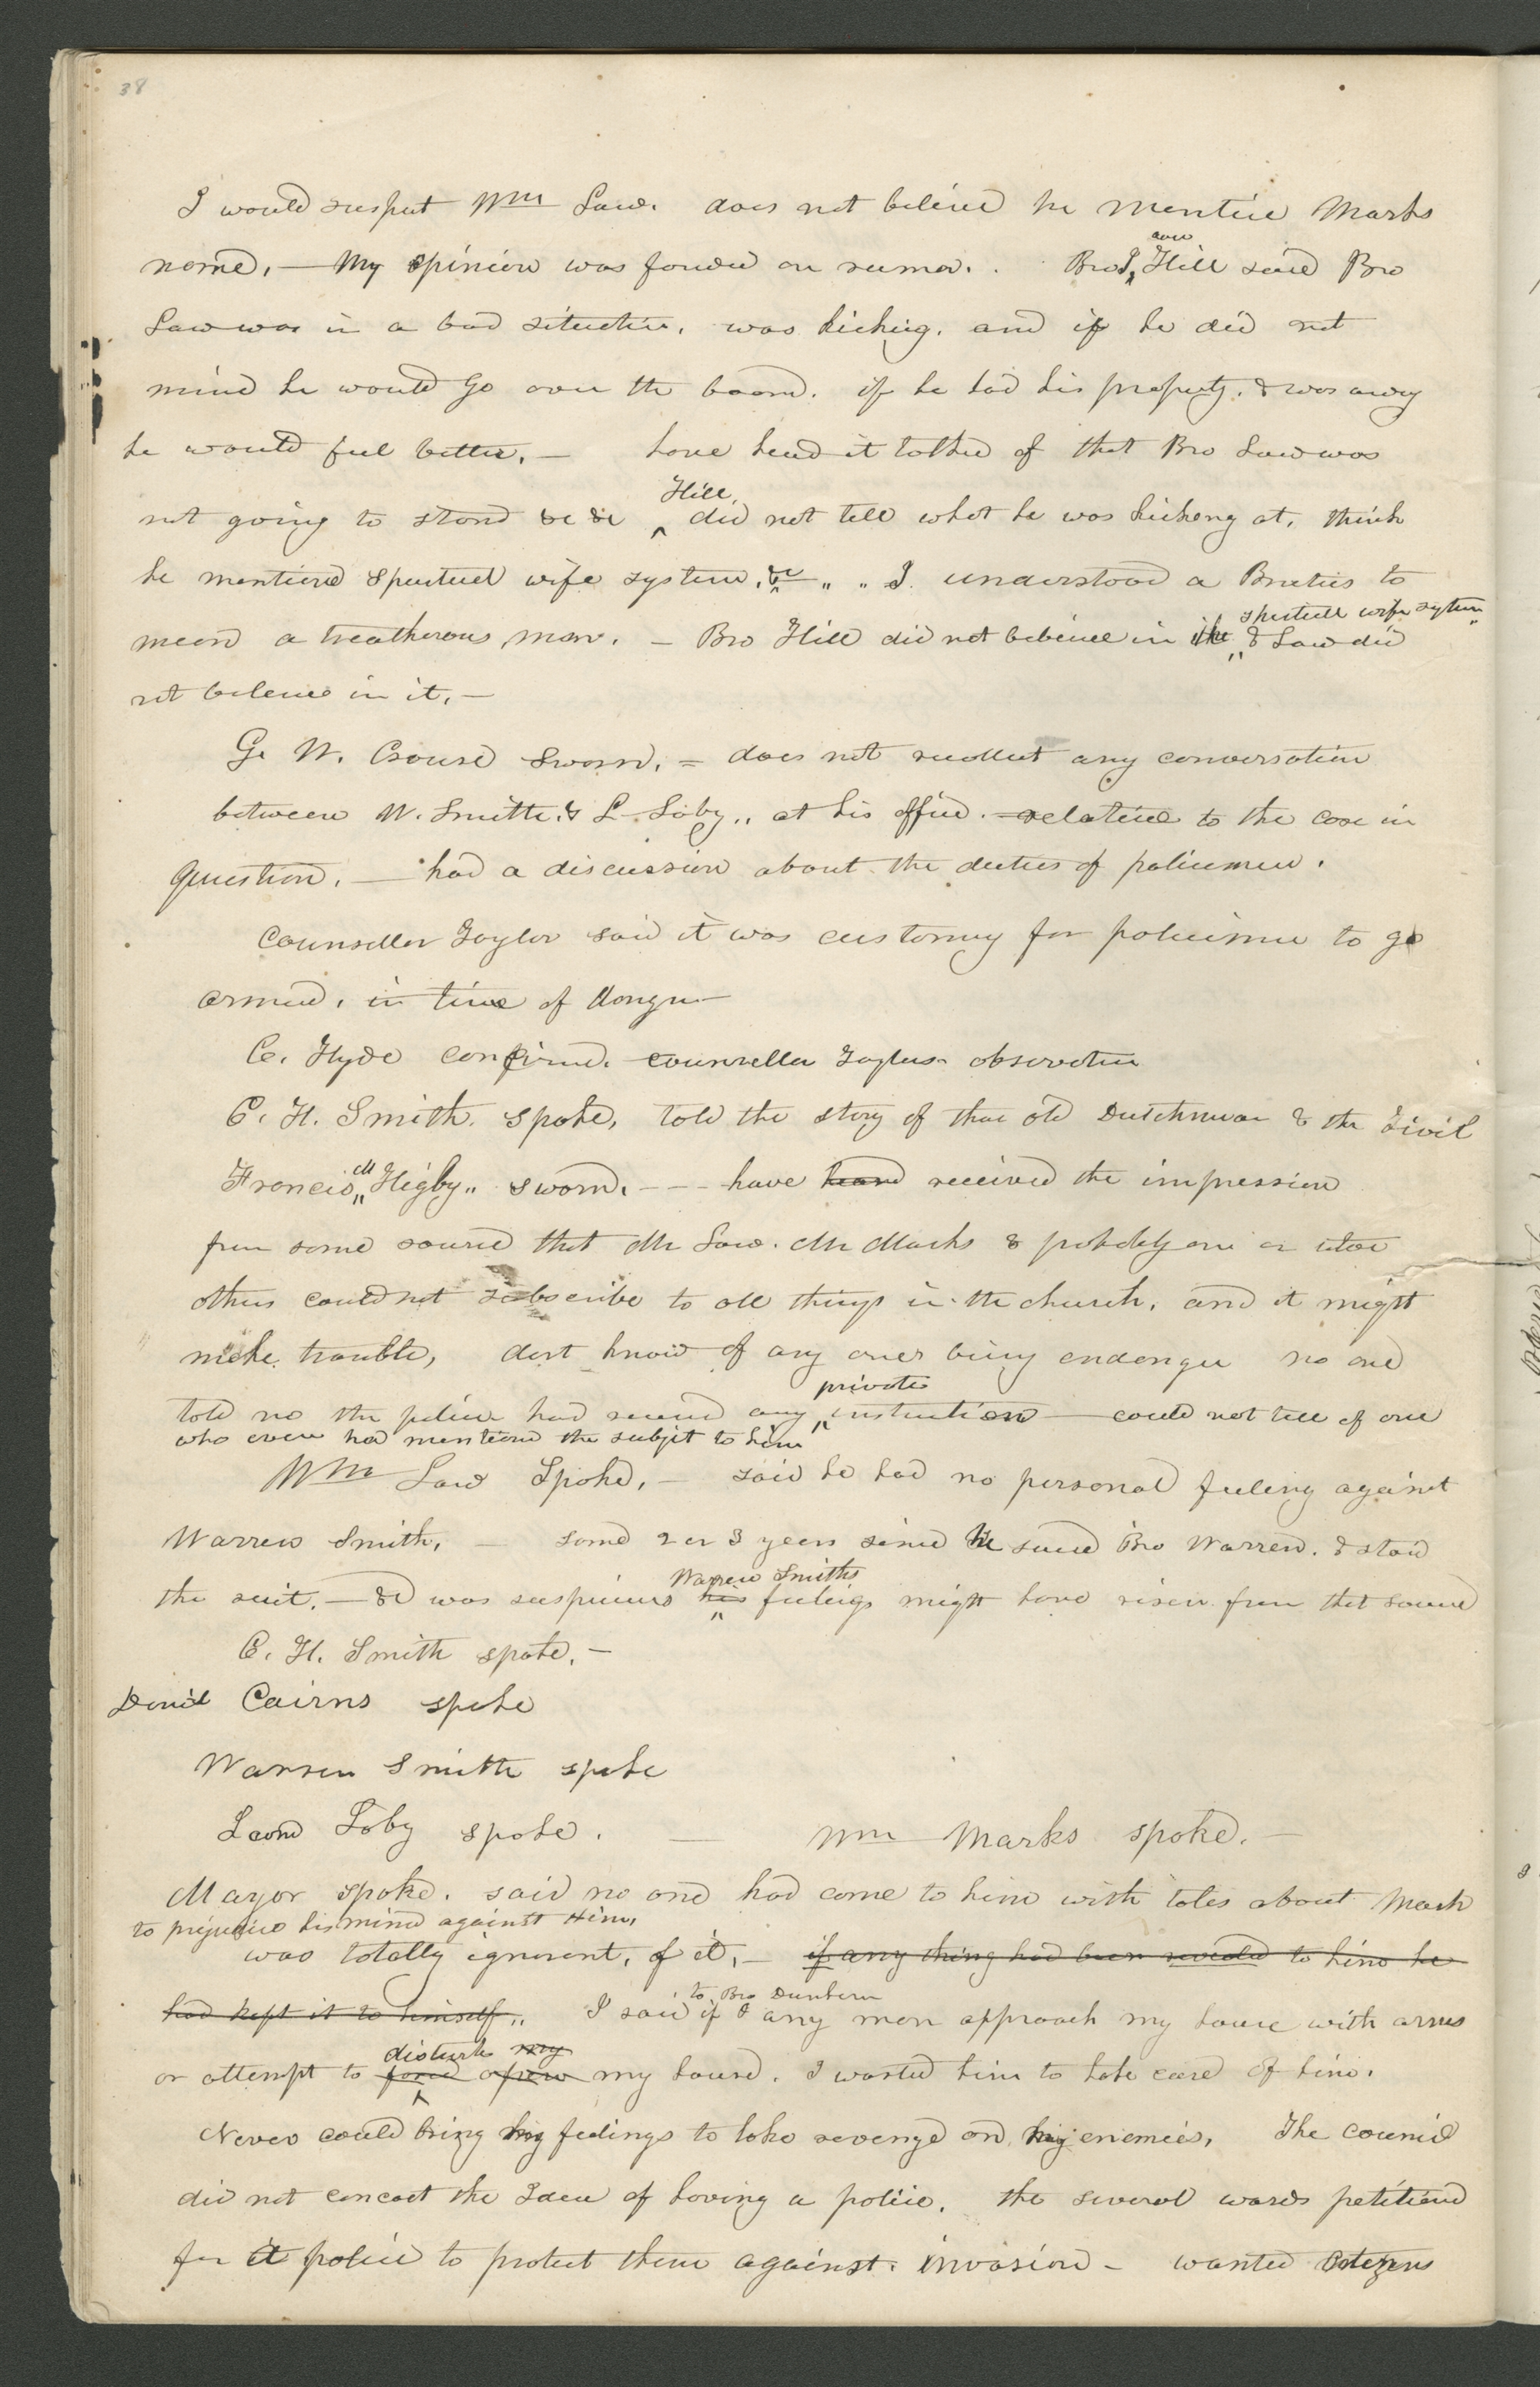 38
I would suspect Wm Law. does not believe he mention Marks
name,— My opinion was founded on rumor. . Bro I,^saac^ Hill said Bro
Law was in a bad situation, was kicking, and if he did not
mind he would go over the board. if he had his property, & was away
he would feel better,— have heard it talked of that Bro Law was
not going to stand &c &c ^Hill,^ did not tell what he was kicking at, think
he mentioned Spiritual wife system, &c " " I understood a Brutus to
mean a treacherous, man. — Bro Hill did not believe in the ^spiritual wife system^ & Law did
not believe in it,—
G. W. Crouse Sworn. = does not recollect any conversation
between W. Smith. & L Soby,, at his office. relative to the case in
Question, — had a discussion about the duties of policemen.
Counsellor Taylor said it was customary for policemen to go
armed, in time of danger—
O. Hyde confirmed. counsellor Taylors observation
C. H. Smith. spoke, told the story of that old Dutchman & the Divil
Francis ^M^ Higby,, sworn, --- have heard received the impression
from some source that Mr Law. Mr Marks & probably one or two
others could not subscribe to all things in the church, and it might
make trouble, dont know of any ones being endanger no one
told no the police had received any ^private^ instruction — could not tell of one
who ever had mentioned the subject to him
Wm Law Spoke,— said he had no personal feeling against
Warren Smith, — some 2 or 3 years since he sued Bro Warren. & staid
the suit,— &c was suspicious his ^Warren Smiths^ feelings might have risen from that source
C. H. Smith spoke,—
Daniel Cairns spoke
Warren Smith spoke
Leond Soby spoke. — Wm Marks spoke.—
Mayor spoke. said no one had come to him with tales about Mark
to prejudice his mind against him,
was totally ignorant, of it,— if any thing had been revealed to him he
had kept it to himself,, I said ^to Bro Dunham^ if I any man approach my house with arms
or attempt to force open ^disturb my^ my house. I wanted him to take care of him.
Never could bring his feelings to take revenge on his enemies, The council
did not concoct the Idea of having a police. the several wards petitioned
for it police to protect them against. invasion - wanted citizens